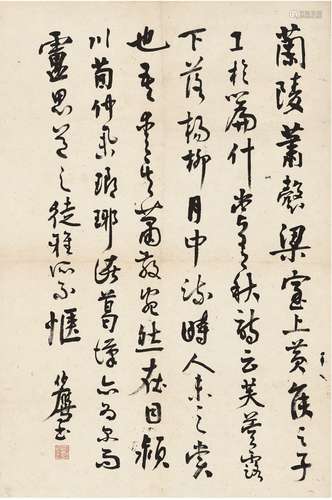 蘭陵蕭慤梁室上黃侯之子
工於篇什嘗有秋詩云芙蓉露
下落楊柳月中疏時人未之賞
也吾愛其蕭散宛然在目潁
川荀仲舉瑯琊諸葛漢亦為爾而
盧思道之徒雅所不愜
伯鷹書